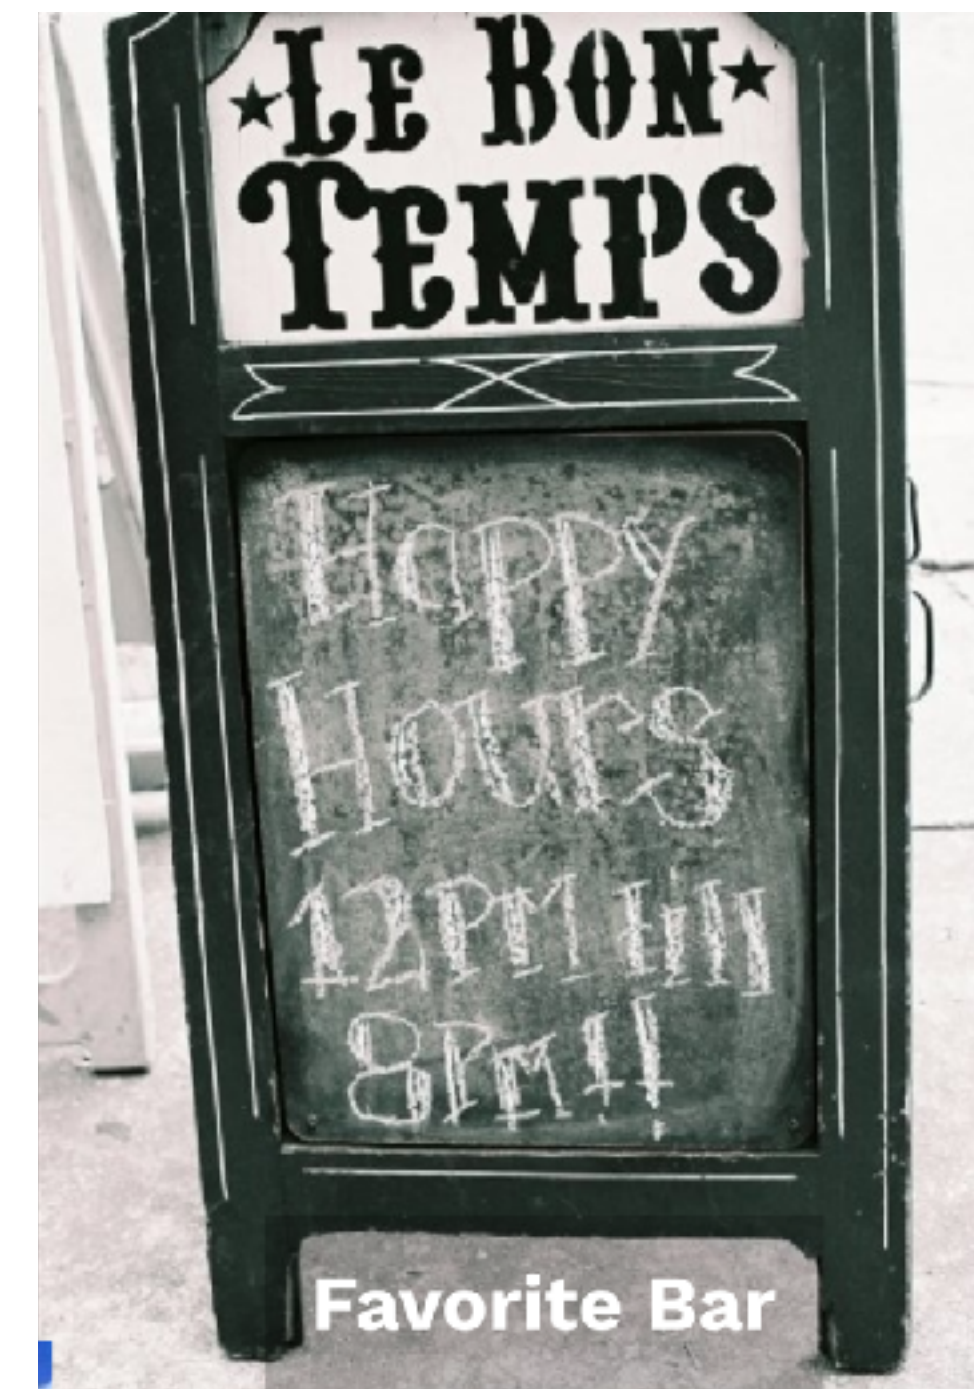 Le Bon
Temps
Happy
Hours
12PM till
8PM!!
Favorite Bar